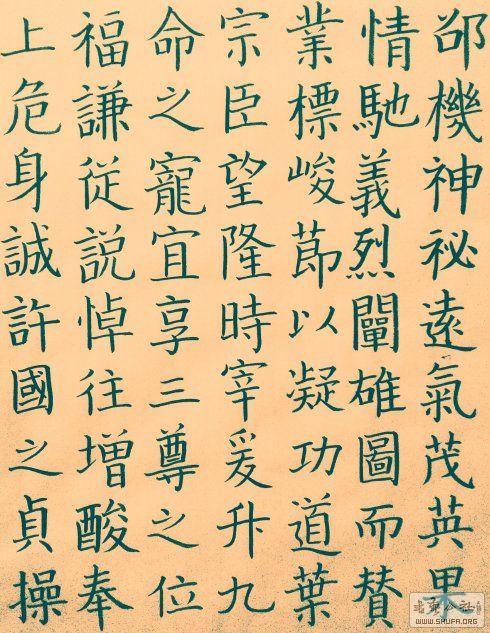 邵機神祕遠氣茂英果
情馳義烈闡雄圖而賛
業標峻節以凝功道葉
宗臣望隆時宰爰升九
命之寵宜享三尊之位
福謙從説悼往增酸奉
上危身誠許國之貞操
WWW.SHUFA.ORG